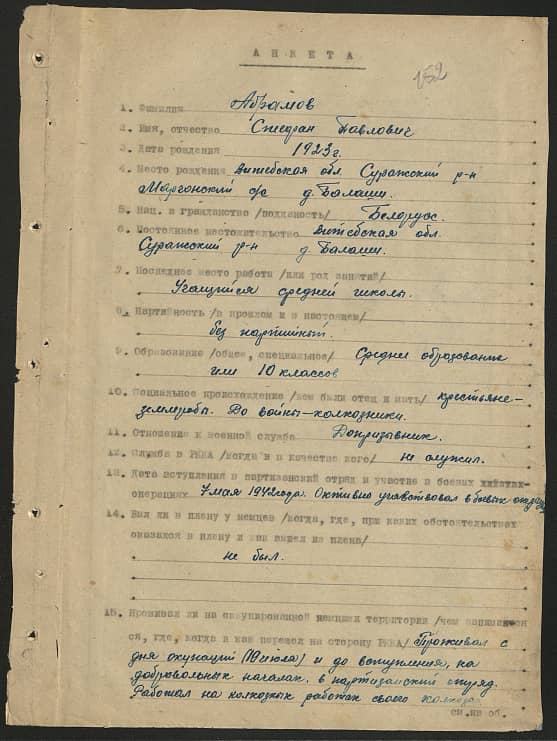 АНКЕТА
152
1. Фамилия Абрамов
2. Имя, отчество Стефан Павлович
3. Дата рождения 1923 г.
4. Место рождения Витебская обл. Суражский р-н
Маргонский с/с д. Балаши.
5. Нац. и гражданство /подданость/ Белорус.
6. Постоянное местожительство Витебская обл.
Суражский р-н д. Балаши.
7. Последнее место работы /или род занятий/
Учащийся средней школы.
8. Партийность /в прошлом и в настоящем/
без партийный.
9. Образование /общее, специальное/ Среднее образование
или 10 классов
10. Социальное происхождение /кем были отец и мать/ крестьяне-
землеробы. До войны-колхозники.
11. Отношение к военной службе Допризывник.
12. Служба в РККА /когда и в качестве кого/ не служил.
13. Дата вступления в партизанский отряд и участие в боевых
операциях 7 мая 1942 года. Активно участвовал в боевых
14. Был ли в плену у немцев /когда, где, при каких обстоятельствах
оказался в плену и как вышел из плена/
не был.
15. Проживал ли на оккупированной немцами территории /чем занимался
ся, где, когда и как перешел на сторону РККА/ Проживал с
дня окупации (10 июля) и до вступления, на
добровольных началах в партизанский отряд.
Работал на колхозных работах своего колхоза.
см. на об.